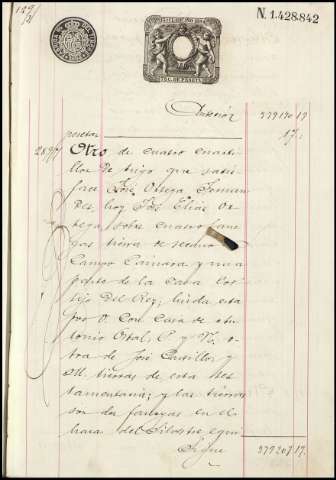 N. 1.428.842
Anterior 379190 17
pesetas 17 "
Otro de cuatro cuarti
llos de trigo que satis
face José Ortega Fernan
dez, hoy José Elías Or
tega, sobre cuatro fane
gas tierra de secano
Campo Camara y una
parte de la Casa Cor
tijo Del Rey; linda esta
por O. con Casa de An
tonio Ostal, P. y N. o
tra de José Carrillo, y
M. tierras de esta tes
tamentaria; y las tierras
son dos fanegas en el
haza del Silvestre equi
Sigue 379207 17